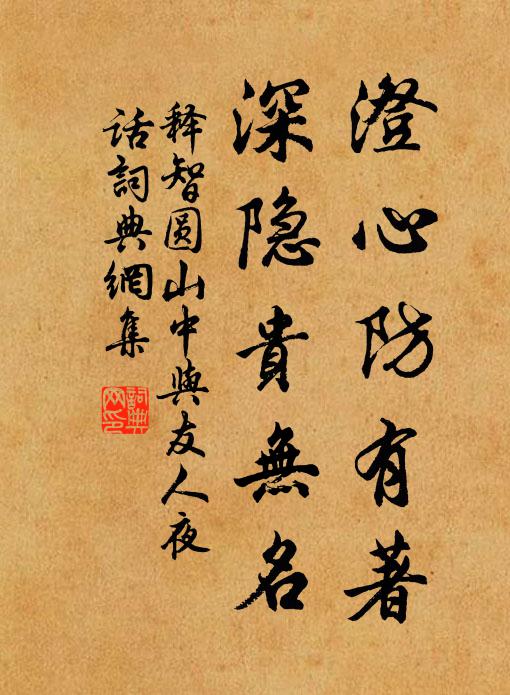 澄心防有著
深隐貴無名
释智圆山中與友人夜
话詞典網集
詞典網印